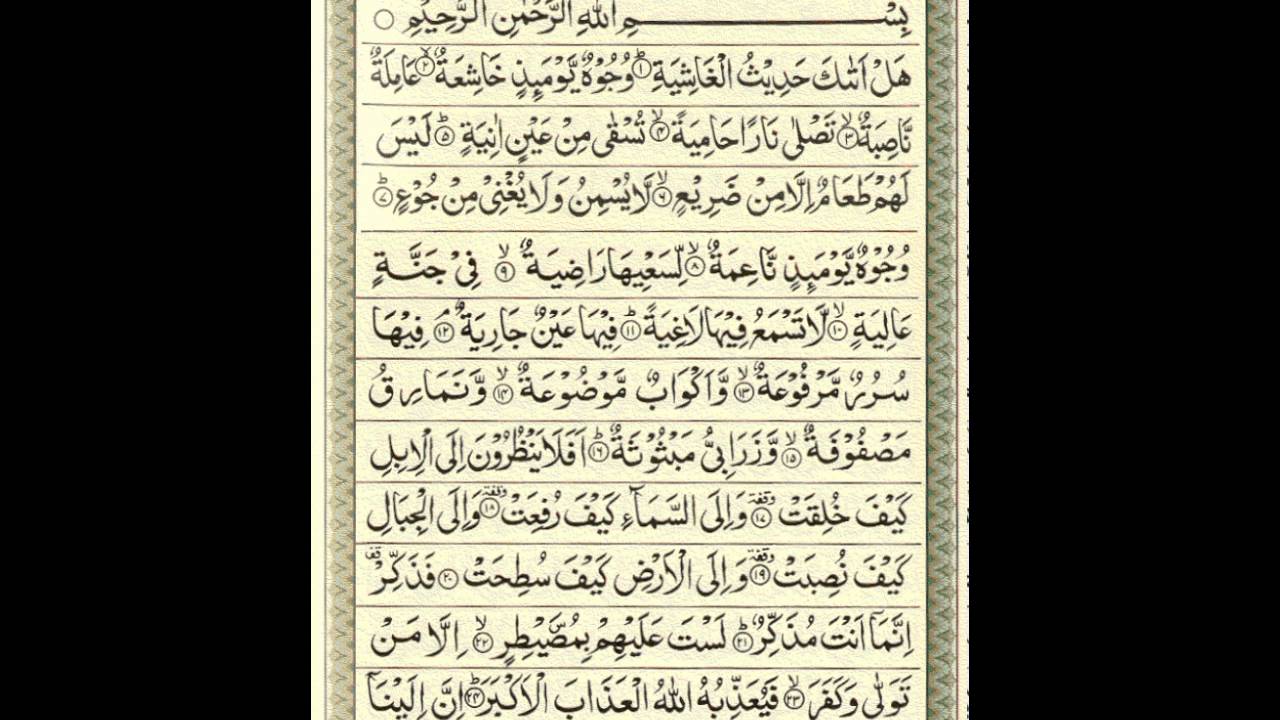 بِسْــــــــمِ اللهِ الرَّحْمٰنِ الرَّحِيْمِ ○
هَلْ اَتٰىكَ حَدِيْثُ الْغَاشِيَةِ ؕ﴿۱﴾ وُجُوْهٌ يَّوْمَئِذٍ خَاشِعَةٌ ۙ﴿۲﴾ عَامِلَةٌ
نَّاصِبَةٌ ۙ﴿۳﴾ تَصْلٰى نَارًا حَامِيَةً ۙ﴿۴﴾ تُسْقٰى مِنْ عَيْنٍ اٰنِيَةٍ ؕ﴿۵﴾ لَيْسَ
لَهُمْ طَعَامٌ اِلَّا مِنْ ضَرِيْعٍ ۙ﴿۶﴾ لَّا يُسْمِنُ وَلَا يُغْنِيْ مِنْ جُوْعٍ ؕ﴿۷﴾
وُجُوْهٌ يَّوْمَئِذٍ نَّاعِمَةٌ ۙ﴿۸﴾ لِّسَعْيِهَا رَاضِيَةٌ ۙ﴿۹﴾ فِيْ جَنَّةٍ
عَالِيَةٍ ۙ﴿۱۰﴾ لَّا تَسْمَعُ فِيْهَا لَاغِيَةً ؕ﴿۱۱﴾ فِيْهَا عَيْنٌ جَارِيَةٌ ۘ﴿۱۲﴾ فِيْهَا
سُرُرٌ مَّرْفُوْعَةٌ ۙ﴿۱۳﴾ وَّاَكْوَابٌ مَّوْضُوْعَةٌ ۙ﴿۱۴﴾ وَّنَمَارِقُ
مَصْفُوْفَةٌ ۙ﴿۱۵﴾ وَّزَرَابِيُّ مَبْثُوْثَةٌ ؕ﴿۱۶﴾ اَفَلَا يَنْظُرُوْنَ اِلَى الْاِبِلِ
كَيْفَ خُلِقَتْ وقفة﴿۱۷﴾ وَاِلَى السَّمَآءِ كَيْفَ رُفِعَتْ وقفة﴿۱۸﴾ وَاِلَى الْجِبَالِ
كَيْفَ نُصِبَتْ وقفة﴿۱۹﴾ وَاِلَى الْاَرْضِ كَيْفَ سُطِحَتْ ﴿۲۰﴾ فَذَكِّرْ قف
اِنَّمَآ اَنْتَ مُذَكِّرٌ ؕ﴿۲۱﴾ لَسْتَ عَلَيْهِمْ بِمُصَۜيْطِرٍ ۙ﴿۲۲﴾ اِلَّا مَنْ
تَوَلّٰى وَكَفَرَ ۙ﴿۲۳﴾ فَيُعَذِّبُهُ اللهُ الْعَذَابَ الْاَكْبَرَ ؕ﴿۲۴﴾ اِنَّ اِلَيْنَآ